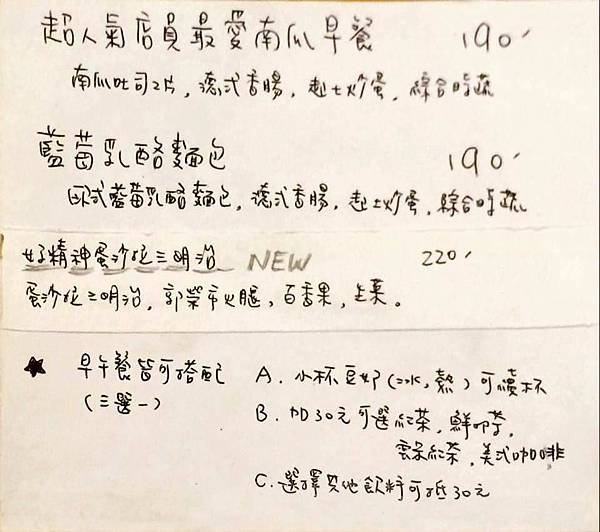 超人氣店員最愛南瓜早餐 190.-
南瓜吐司2片, 德式香腸, 起士炒蛋, 綜合時蔬
藍莓乳酪麵包 190.-
歐式藍莓乳酪麵包, 德式香腸, 起士炒蛋, 綜合時蔬
好精神蛋沙拉三明治 NEW 220.-
蛋沙拉三明治, 郭榮市火腿, 百香果, 生菜。
★ 早午餐皆可搭配 A. 小杯豆奶(冰, 熱)可續杯
(三選一) B. 加30元可選紅茶, 鮮奶茶,
雲朵紅茶, 美式咖啡
C. 選擇其他飲料可抵30元